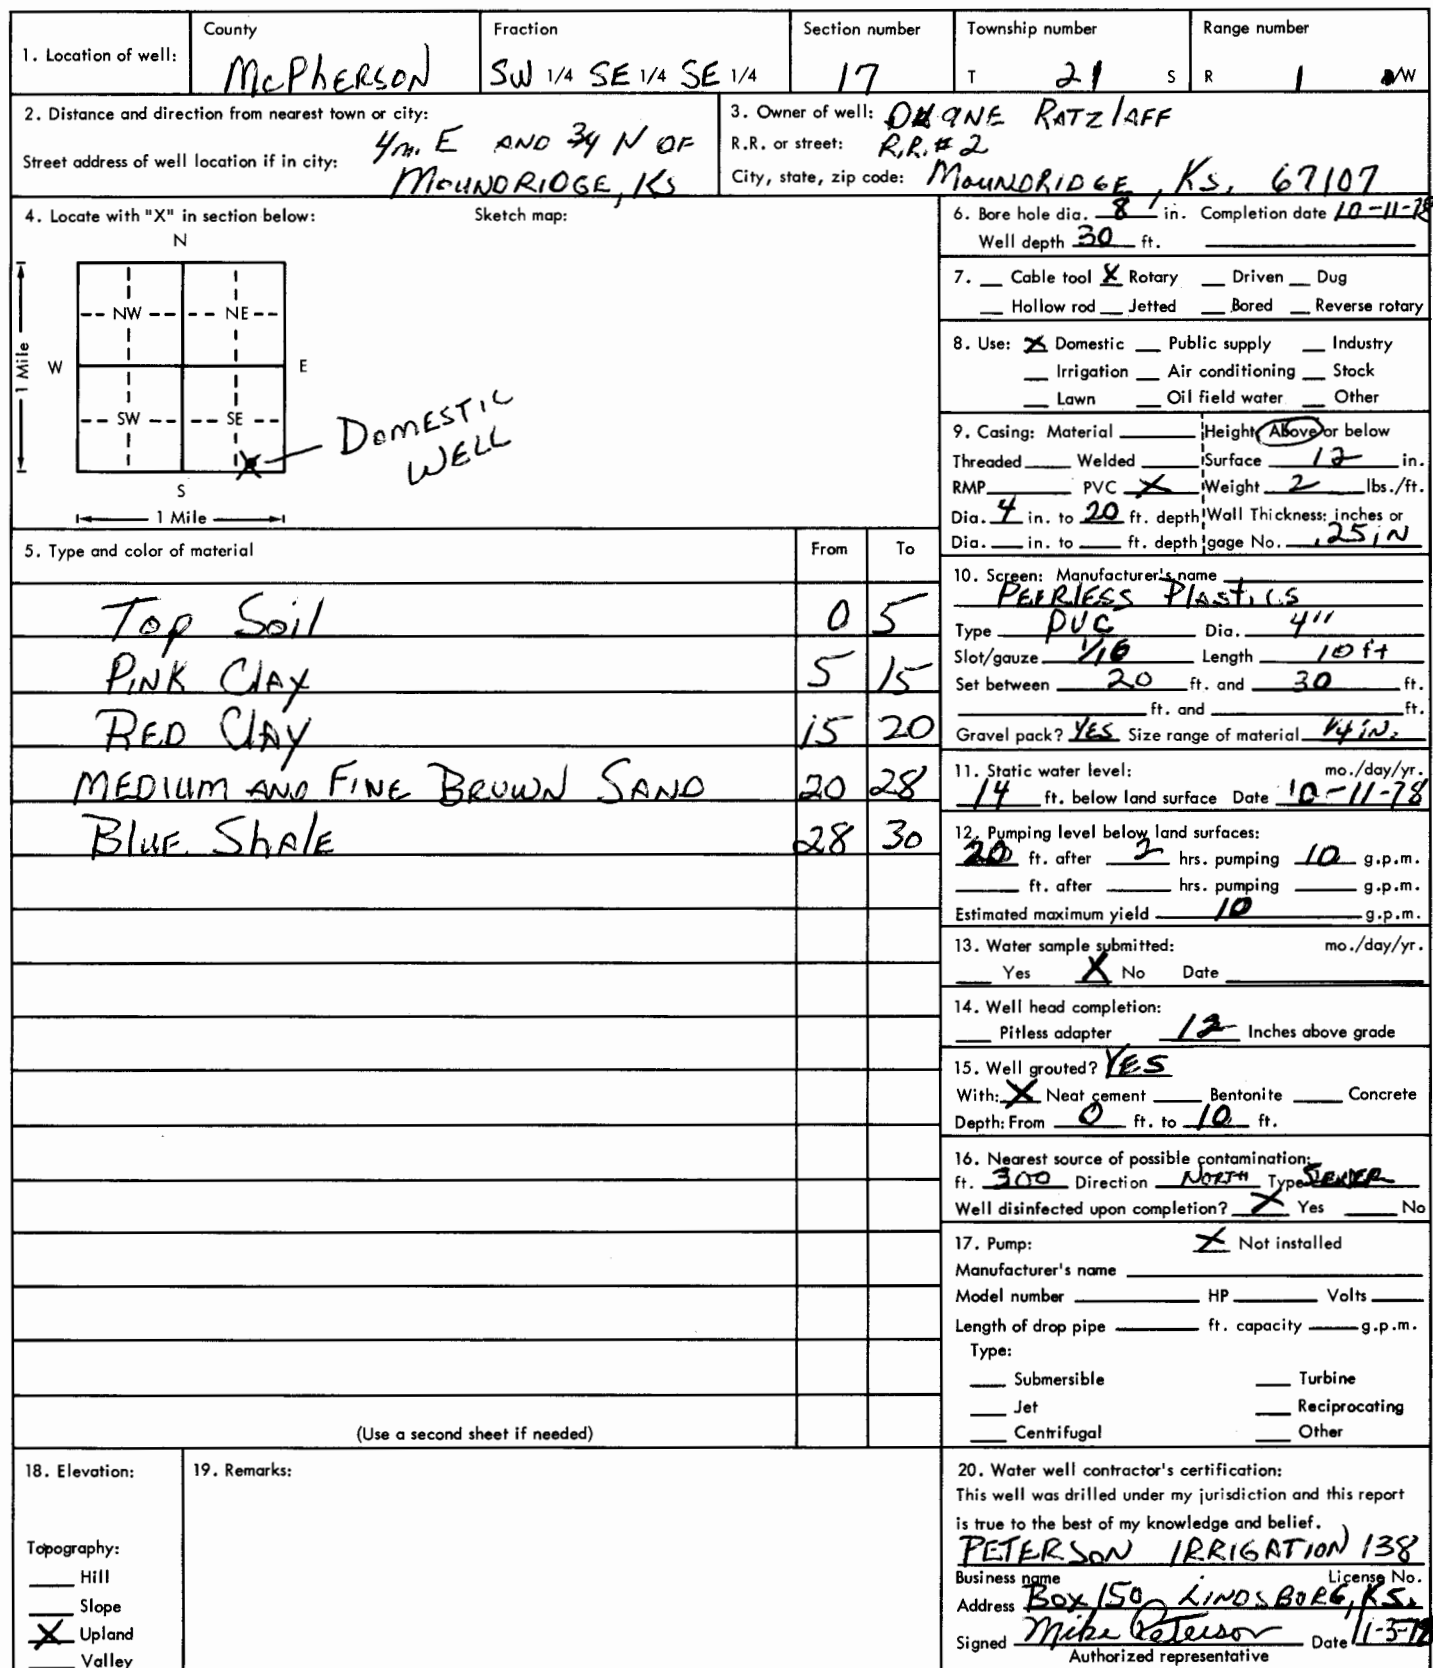 1. Location of well:
County
McPherson
Fraction
SW 1/4 SE 1/4 SE 1/4
Section number
17
Township number
T 21 S
Range number
R 1 /W
2. Distance and direction from nearest town or city:
4m. E AND 3/4 N OF
Street address of well location if in city:
MOUNDRIDGE, KS
3. Owner of well: DUANE RATZLAFF
R.R. or street: R.R.# 2
City, state, zip code: MOUNDRIDGE, KS. 67107
4. Locate with "X" in section below:
Sketch map:
N
NW NE
W E
1 Mile
SW SE
S
1 Mile
DOMESTIC
WELL
5. Type and color of material From To
Top Soil 0 5
PINK CLAY 5 15
RED CLAY 15 20
MEDIUM AND FINE BROWN SAND 20 28
Blue Shale 28 30
(Use a second sheet if needed)
6. Bore hole dia. 8 in. Completion date 10-11-78
Well depth 30 ft.
7. Cable tool X Rotary Driven Dug
Hollow rod Jetted Bored Reverse rotary
8. Use: X Domestic Public supply Industry
Irrigation Air conditioning Stock
Lawn Oil field water Other
9. Casing: Material Height: Above or below
Threaded Welded Surface 12 in.
RMP PVC X Weight 2 lbs./ft.
Dia. 4 in. to 20 ft. depth Wall Thickness: inches or
Dia. in. to ft. depth gage No. .25 IN
10. Screen: Manufacturer's name
PEERLESS PLASTICS
Type PVC Dia. 4"
Slot/gauze 1/16 Length 10 ft
Set between 20 ft. and 30 ft.
ft. and ft.
Gravel pack? YES Size range of material 1/4 IN.
11. Static water level: mo./day/yr.
14 ft. below land surface Date 10-11-78
12. Pumping level below land surfaces:
20 ft. after 2 hrs. pumping 10 g.p.m.
ft. after hrs. pumping g.p.m.
Estimated maximum yield 10 g.p.m.
13. Water sample submitted: mo./day/yr.
Yes X No Date
14. Well head completion:
Pitless adapter 12 Inches above grade
15. Well grouted? YES
With: X Neat cement Bentonite Concrete
Depth: From 0 ft. to 10 ft.
16. Nearest source of possible contamination:
ft. 300 Direction NORTH Type SEWER
Well disinfected upon completion? X Yes No
17. Pump: X Not installed
Manufacturer's name
Model number HP Volts
Length of drop pipe ft. capacity g.p.m.
Type:
Submersible Turbine
Jet Reciprocating
Centrifugal Other
18. Elevation:
Topography:
Hill
Slope
X Upland
Valley
19. Remarks:
20. Water well contractor's certification:
This well was drilled under my jurisdiction and this report
is true to the best of my knowledge and belief.
PETERSON IRRIGATION 138
Business name License No.
Address BOX 150 LINDSBORG, KS.
Signed Mike Peterson Date 11-3-78
Authorized representative